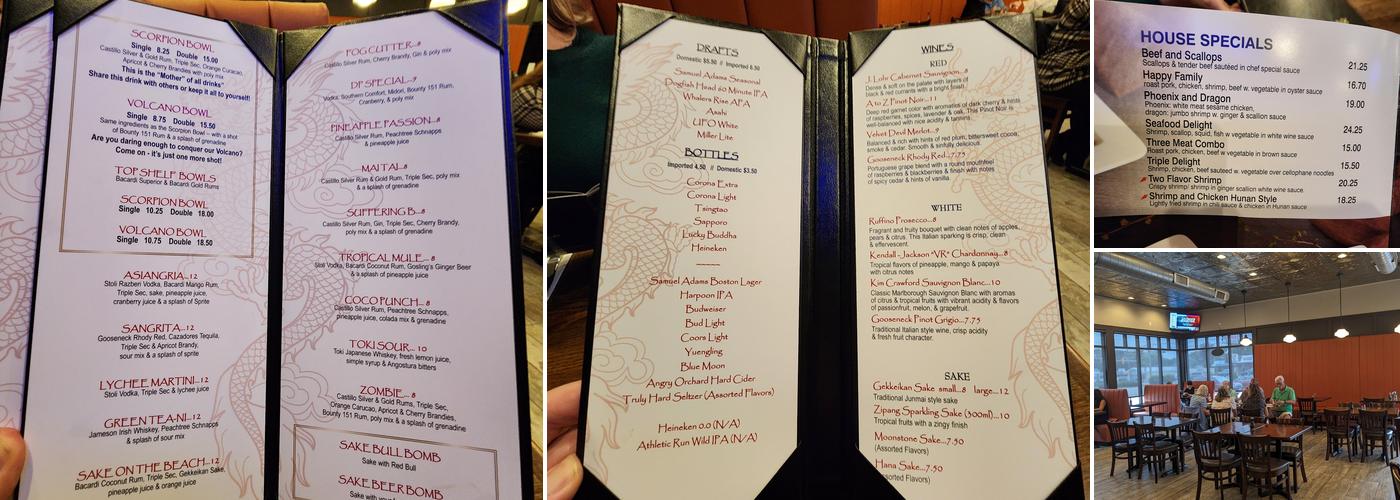 SCORPION BOWL
Single 8.25 Double 15.00
Castillo Silver & Gold Rum, Triple Sec, Orange Curacao,
Apricot & Cherry Brandies with poly mix
This is the "Mother" of all drinks"
Share this drink with others or keep it all to yourself!
VOLCANO BOWL
Single 8.75 Double 15.50
Same ingredients as the Scorpion Bowl – with a shot
of Bounty 151 Rum & a splash of grenadine
Are you daring enough to conquer our Volcano?
Come on - it's just one more shot!
TOP SHELF BOWLS
Bacardi Superior & Bacardi Gold Rums
SCORPION BOWL
Single 10.25 Double 18.00
VOLCANO BOWL
Single 10.75 Double 18.50
ASIANGRIA...12
Stoli Razberi Vodka, Bacardi Mango Rum,
Triple Sec, sake, pineapple juice,
cranberry juice & a splash of Sprite
SANGRITA...12
Gooseneck Rhody Red, Cazadores Tequila,
Triple Sec & Apricot Brandy,
sour mix & a splash of sprite
LYCHEE MARTINI...12
Stoli Vodka, Triple Sec & lychee juice
GREEN TEA-NI...12
Jameson Irish Whiskey, Peachtree Schnapps
& splash of sour mix
SAKE ON THE BEACH...12
Bacardi Coconut Rum, Triple Sec, Gekkeikan Sake,
pineapple juice & orange juice
FOG CUTTER...8
Castillo Silver Rum, Cherry Brandy, Gin & poly mix
DP SPECIAL...9
Vodka, Southern Comfort, Midori, Bounty 151 Rum,
Cranberry, & poly mix
PINEAPPLE PASSION...8
Castillo Silver Rum, Peachtree Schnapps
& pineapple juice
MAI TAI...8
Castillo Silver Rum & Gold Rum, Triple Sec, poly mix
& a splash of grenadine
SUFFERING B...8
Castillo Silver Rum, Gin, Triple Sec, Cherry Brandy,
poly mix & a splash of grenadine
TROPICAL MULE... 8
Stoli Vodka, Bacardi Coconut Rum, Gosling's Ginger Beer
& a splash of pineapple juice
COCO PUNCH... 8
Castillo Silver Rum, Peachtree Schnapps,
pineapple juice, colada mix & grenadine
TOKI SOUR... 10
Toki Japanese Whiskey, fresh lemon juice,
simple syrup & Angostura bitters
ZOMBIE... 8
Castillo Silver & Gold Rums, Triple Sec,
Orange Carucao, Apricot & Cherry Brandies,
Bounty 151 Rum, poly mix, & splash of grenadine
SAKE BULL BOMB
Sake with Red Bull
SAKE BEER BOMB
DRAFTS
Domestic $5.50 // Imported 6.50
Samuel Adams Seasonal
Dogfish Head 60 Minute IPA
Whalers Rise APA
Asahi
UFO White
Miller Lite
BOTTLES
Imported 4.50 // Domestic $3.50
Corona Extra
Corona Light
Tsingtao
Sapporo
Lucky Buddha
Heineken
Samuel Adams Boston Lager
Harpoon IPA
Budweiser
Bud Light
Coors Light
Yuengling
Blue Moon
Angry Orchard Hard Cider
Truly Hard Seltzer (Assorted Flavors)
Heineken 0.0 (N/A)
Athletic Run Wild IPA (N/A)
WINES
RED
J. Lohr Cabernet Sauvignon...8
Dense & soft on the palate with layers of
black & red currants with a bright finish.
A to Z Pinot Noir...11
Deep red garnet color with aromatics of dark cherry & hints
of raspberries, spices, lavender & oak. This Pinot Noir is
well-balanced with nice acidity & tannins.
Velvet Devil Merlot...9
Balanced & rich with hints of red plum, bittersweet cocoa,
smoke & cedar. Smooth & sinfully delicious.
Gooseneck Rhody Red...7.75
Portuguese grape blend with a round mouthfeel
of raspberries & blackberries & finish with notes
of spicy cedar & hints of vanilla.
WHITE
Ruffino Prosecco...8
Fragrant and fruity bouquet with clean notes of apples,
pears & citrus. This Italian sparkling is crisp, clean
& effervescent.
Kendall - Jackson "VR" Chardonnay...8
Tropical flavors of pineapple, mango & papaya
with citrus notes
Kim Crawford Sauvignon Blanc...10
Classic Marlborough Sauvignon Blanc with aromas
of citrus & tropical fruits with vibrant acidity & flavors
of passionfruit, melon, & grapefruit.
Gooseneck Pinot Grigio...7.75
Traditional Italian style wine, crisp acidity
& fresh fruit character.
SAKE
Gekkeikan Sake small...8 large...12
Traditional Junmai style sake
Zipang Sparkling Sake (300ml)...10
Tropical fruits with a zingy finish
Moonstone Sake...7.50
(Assorted Flavors)
Hana Sake...7.50
HOUSE SPECIALS
Beef and Scallops 21.25
Scallops & tender beef sautéed in chef special sauce
Happy Family 16.70
roast pork, chicken, shrimp, beef w. vegetable in oyster sauce
Phoenix and Dragon 19.00
Phoenix: white meat sesame chicken,
dragon: jumbo shrimp w. ginger & scallion sauce
Seafood Delight 24.25
Shrimp, scallop, squid, fish w vegetable in white wine sauce
Three Meat Combo 15.00
Roast pork, chicken, beef w vegetable in brown sauce
Triple Delight 15.50
Shrimp, chicken, beef sauteed w. vegetable over cellophane noodles
Two Flavor Shrimp 20.25
Crispy shrimp/ shrimp in ginger scallion white wine sauce.
Shrimp and Chicken Hunan Style 18.25
Lightly fried shrimp in chili sauce & chicken in Hunan sauce